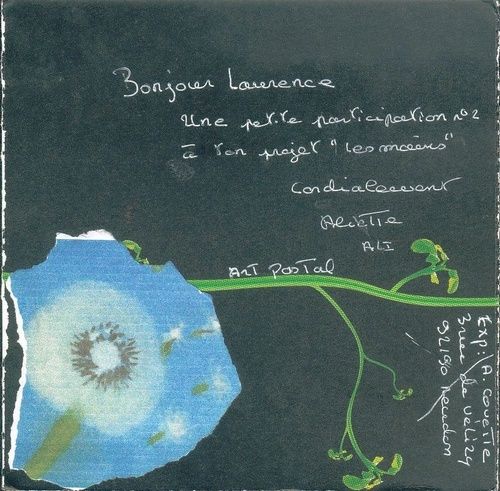 Bonjour Laurence
Une petite participation n°2
à ton projet "Les mains"
Cordialement
Aliette
ALI
ART POSTAL
Exp: A. Couette
3 rue de Vélizy
92190 Meudon